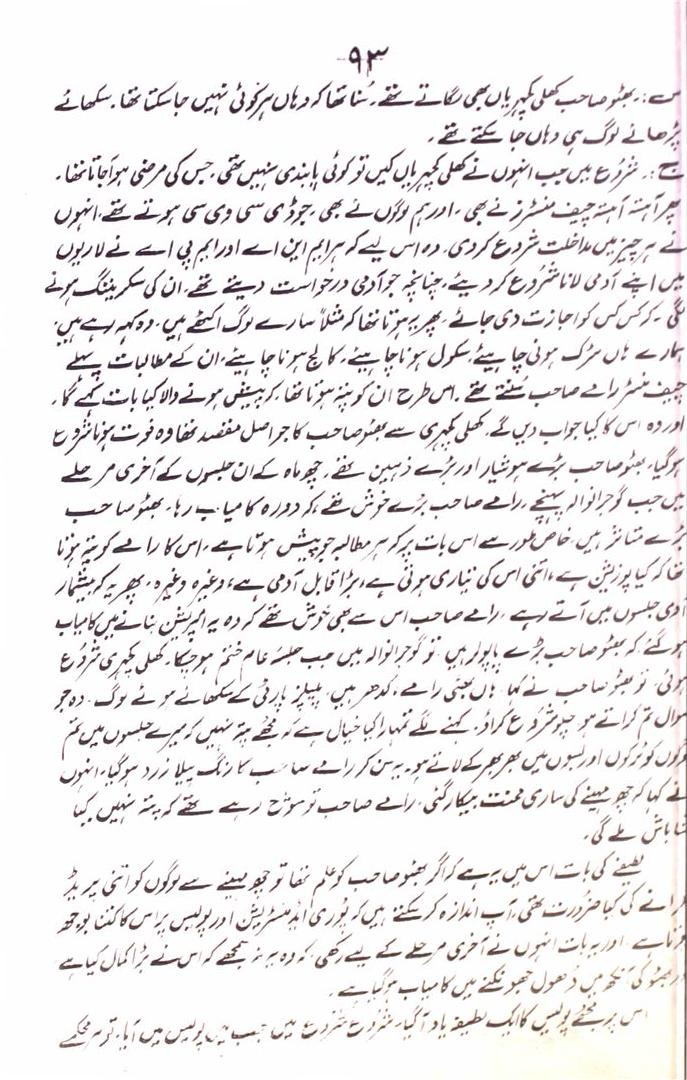 ۹۳
س :۔ بھٹو صاحب کھلی کچہریاں بھی لگاتے تھے۔ سُنا تھا کہ وہاں ہر کوئی نہیں جا سکتا تھا۔ سکھائے
پڑھائے لوگ ہی وہاں جا سکتے تھے۔
ج :۔ شروع میں جب انہوں نے کھلی کچہریاں کیں تو کوئی پابندی نہیں تھی۔ جس کی مرضی ہو آجاتا تھا۔
پھر آہستہ آہستہ چیف منسٹرز نے بھی، اور ہم لوگوں نے بھی، جو ڈی سی وی سی ہوتے تھے، انہوں
نے ہر چیز میں مداخلت شروع کر دی۔ وہ اس لیے کہ ہر ایم این اے اور ایم پی اے نے لاریوں
میں اپنے آدمی لانا شروع کر دیئے، چنانچہ جو آدمی درخواست دیتے تھے، ان کی سکریننگ ہونے
لگی۔ کہ کس کس کو اجازت دی جائے۔ پھر یہ ہوتا تھا کہ مثلاً سارے لوگ اکٹھے ہیں۔ وہ کہہ رہے ہیں،
ہمارے ہاں سڑک ہونی چاہیئے، سکول ہونا چاہیئے، کالج ہونا چاہیئے، ان کے مطالبات پہلے
چیف منسٹر رامے صاحب سُنتے تھے۔ اس طرح ان کو پتہ ہوتا تھا، کہ پیش ہونے والا کیا بات کہے گا۔
اور وہ اس کا کیا جواب دیں گے، کھلی کچہری سے بھٹو صاحب کا جو اصل مقصد تھا وہ فوت ہونا شروع
ہوگیا، بھٹو صاحب بڑے ہوشیار اور بڑے ذہین تھے۔ چھ ماہ کے ان جلسوں کے آخری مرحلے
میں جب گوجرانوالہ پہنچے، رامے صاحب بڑے خوش تھے، کہ دورہ کامیاب رہا۔ بھٹو صاحب
بڑے متاثر ہیں، خاص طور سے اس بات پر کہ ہر مطالبہ جو پیش ہوتا ہے، اس کا رامے کو پتہ ہوتا
تھا کہ کیا پوزیشن ہے، اتنی اس کی تیاری ہوتی ہے، بڑا قابل آدمی ہے، وغیرہ وغیرہ۔ پھر یہ کہ بیشمار
آدمی جلسوں میں آتے رہے، رامے صاحب اس سے بھی خوش تھے کہ وہ یہ امپریشن بنانے میں کامیاب
ہو گئے، کہ بھٹو صاحب بڑے پاپولر ہیں۔ تو گوجرانوالہ میں جب جلسۂ عام ختم ہو چکا۔ کھلی کچہری شروع
ہوئی۔ تو بھٹو صاحب نے کہا۔ ہاں بھئی رامے، کدھر ہیں، پیپلز پارٹی کے سکھائے ہوئے لوگ۔ وہ جو
سوال تم کراتے ہو چلو شروع کراؤ۔ کہنے لگے تمہارا کیا خیال ہے کہ مجھے پتہ نہیں کہ میرے جلسوں میں تم
لوگوں کو ٹرکوں اور بسوں میں بھر بھر کے لاتے ہو۔ یہ سن کر رامے صاحب کا رنگ پیلا زرد ہوگیا، انہوں
نے کہا کہ چھ مہینے کی ساری محنت بیکار گئی، رامے صاحب تو سوچ رہے تھے کہ پتہ نہیں کیا
شاباش ملے گی۔
لطیفے کی بات اس میں یہ ہے کہ اگر بھٹو صاحب کو علم تھا تو چھ مہینے سے لوگوں کو اتنی پریڈ
کرانے کی کیا ضرورت تھی، آپ اندازہ کر سکتے ہیں کہ پُوری ایڈمنسٹریشن اور پولیس پر اس کا کتنا بوجھ
ہوتا ہے۔ اور یہ بات انہوں نے آخری مرحلے کے لیے رکھی، کہ وہ یہ نہ سمجھے کہ اس نے بڑا کمال کیا ہے
اور بھٹو کی آنکھ میں دُھول جھونکنے میں کامیاب ہوگیا ہے۔
اس پر مجھے پولیس کا ایک لطیفہ یاد آگیا۔ شروع شروع میں جب میں پولیس میں آیا، تو ہر محکمے